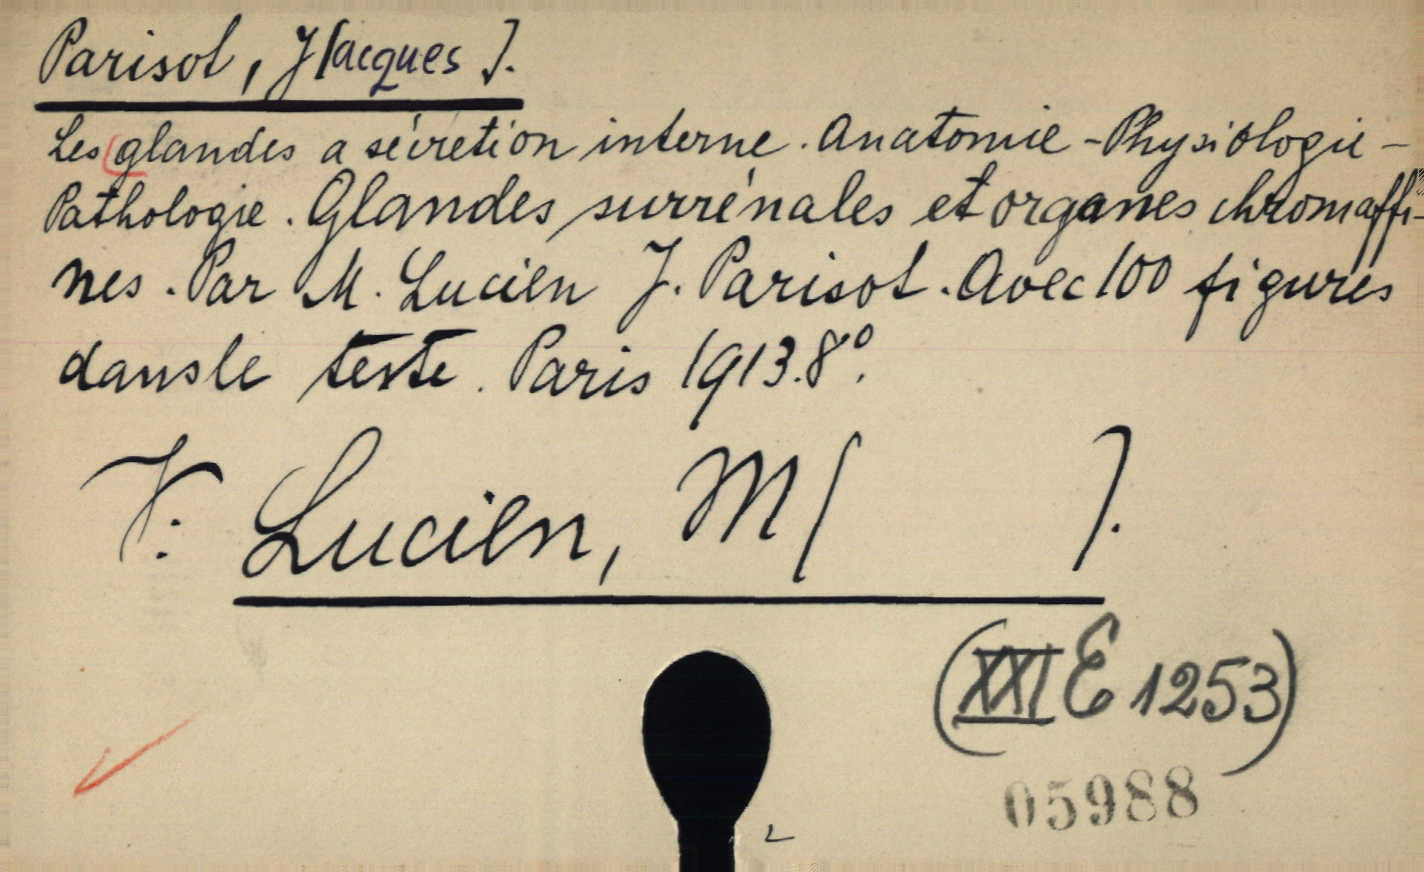 Parisot, J[acques].
Les glandes a sécretion interne. Anatomie - Physiologie -
Pathologie. Glandes surrénales et organes chromaffi-
nes. Par M. Lucien J. Parisot. Avec 100 figures
dans le texte. Paris 1913. 8º.
V: Lucien, M[ ].
(XXI E 1253)
05988